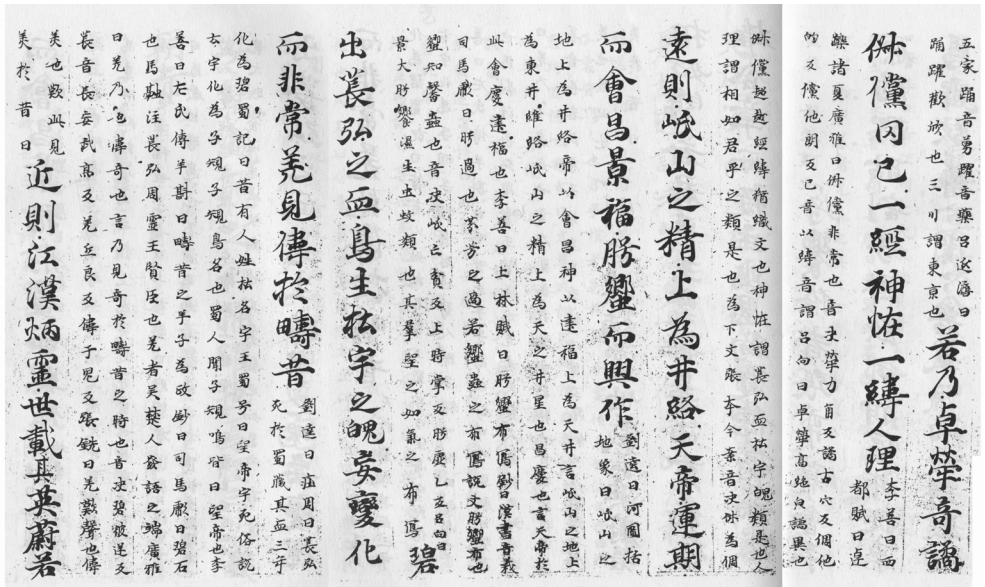 五家踊音勇躍音藥呂延濟曰
踊躍歡㰤也三川謂東京也
若乃卓犖奇譎
倜儻罔已一經神恠一緯人理
李善曰西
都賦曰逴
躒諸夏廣雅曰倜儻非常也音决犖力角反譎古穴反倜他
的反儻他朗反已音以緯音謂呂向曰卓犖高絶皃譎異也
倜儻超越經緯猶織文也神恠謂萇弘血杜宇魄類是也人
理謂相如君平之類是也為下文張本今案音决倜為個
遠則岷山之精上為井絡天帝運期
而會昌景福肹蠁而興作
劉逵曰河圖括
地象曰岷山之
地上為井絡帝以會昌神以建福上為天井言岷山之地上
為東井維絡岷山之精上為天之井星也昌慶也言天帝於
此會慶建福也李善曰上林賦曰肹蠁布寫鈔曰漢書音義
司馬彪曰肹過也芬芳之過若蠁蟲之布寫說文肹蠁布也
蠁知聲蟲也音决岷亡貧反上時掌反肹虛乙反呂向曰
景大肹蠁濕生虫蚊類也其羣望之如氣之布寫
碧
出萇弘之血鳥生杜宇之魄妄變化
而非常羌見偉於疇昔
劉逵曰莊周曰萇弘
死於蜀藏其血三年
化為碧蜀記曰昔有人姓杜名宇王蜀号曰望帝宇死俗說
云宇化為子規子規鳥名也蜀人聞子規鳴皆曰望帝也李
善曰左氏傳羊斟曰疇昔之羊子為政鈔曰司馬彪曰碧石
也馬融注萇弘周靈王賢臣也羌者吴楚人發語之端廣雅
曰羌乃也偉奇也言乃見奇於疇昔之時也音决碧彼逆反
萇音長妄武亮反羌丘良反偉于鬼反張銑曰羌歎聲也偉
美也歎此見
美於昔日
近則江漢炳靈世載其英蔚若